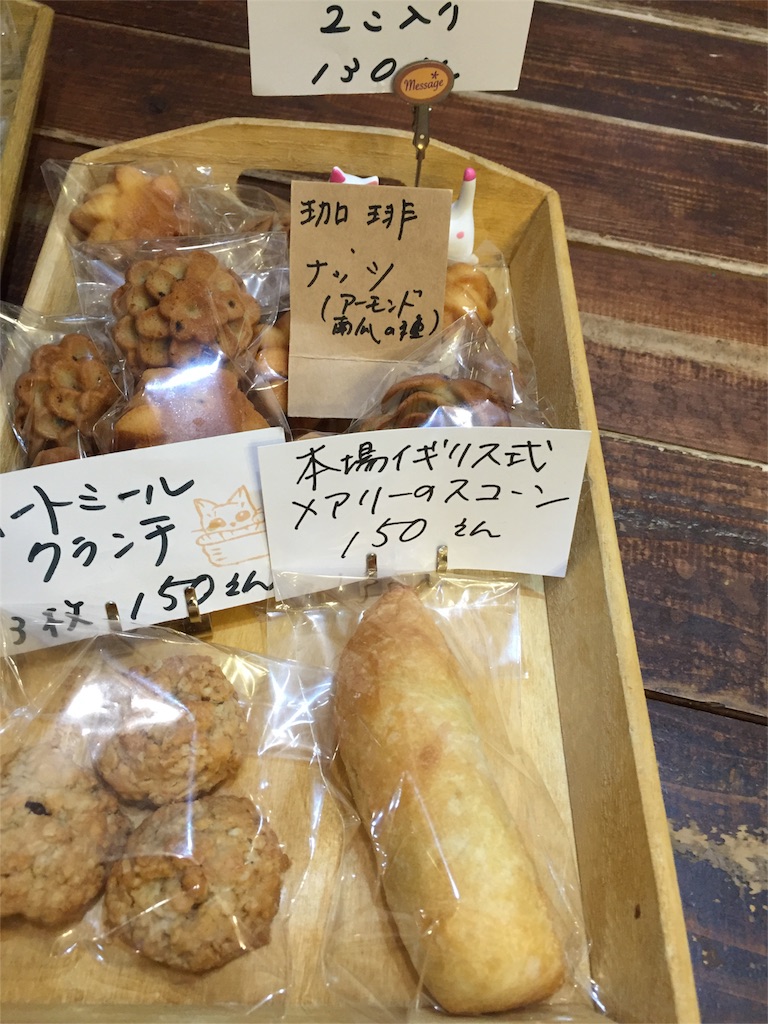 2こ入り
130えん
Message
珈琲
ナッツ
(アーモンド
南瓜の種)
本場イギリス式
メアリーのスコーン
150えん
ートミール
クランチ
3枚 150えん